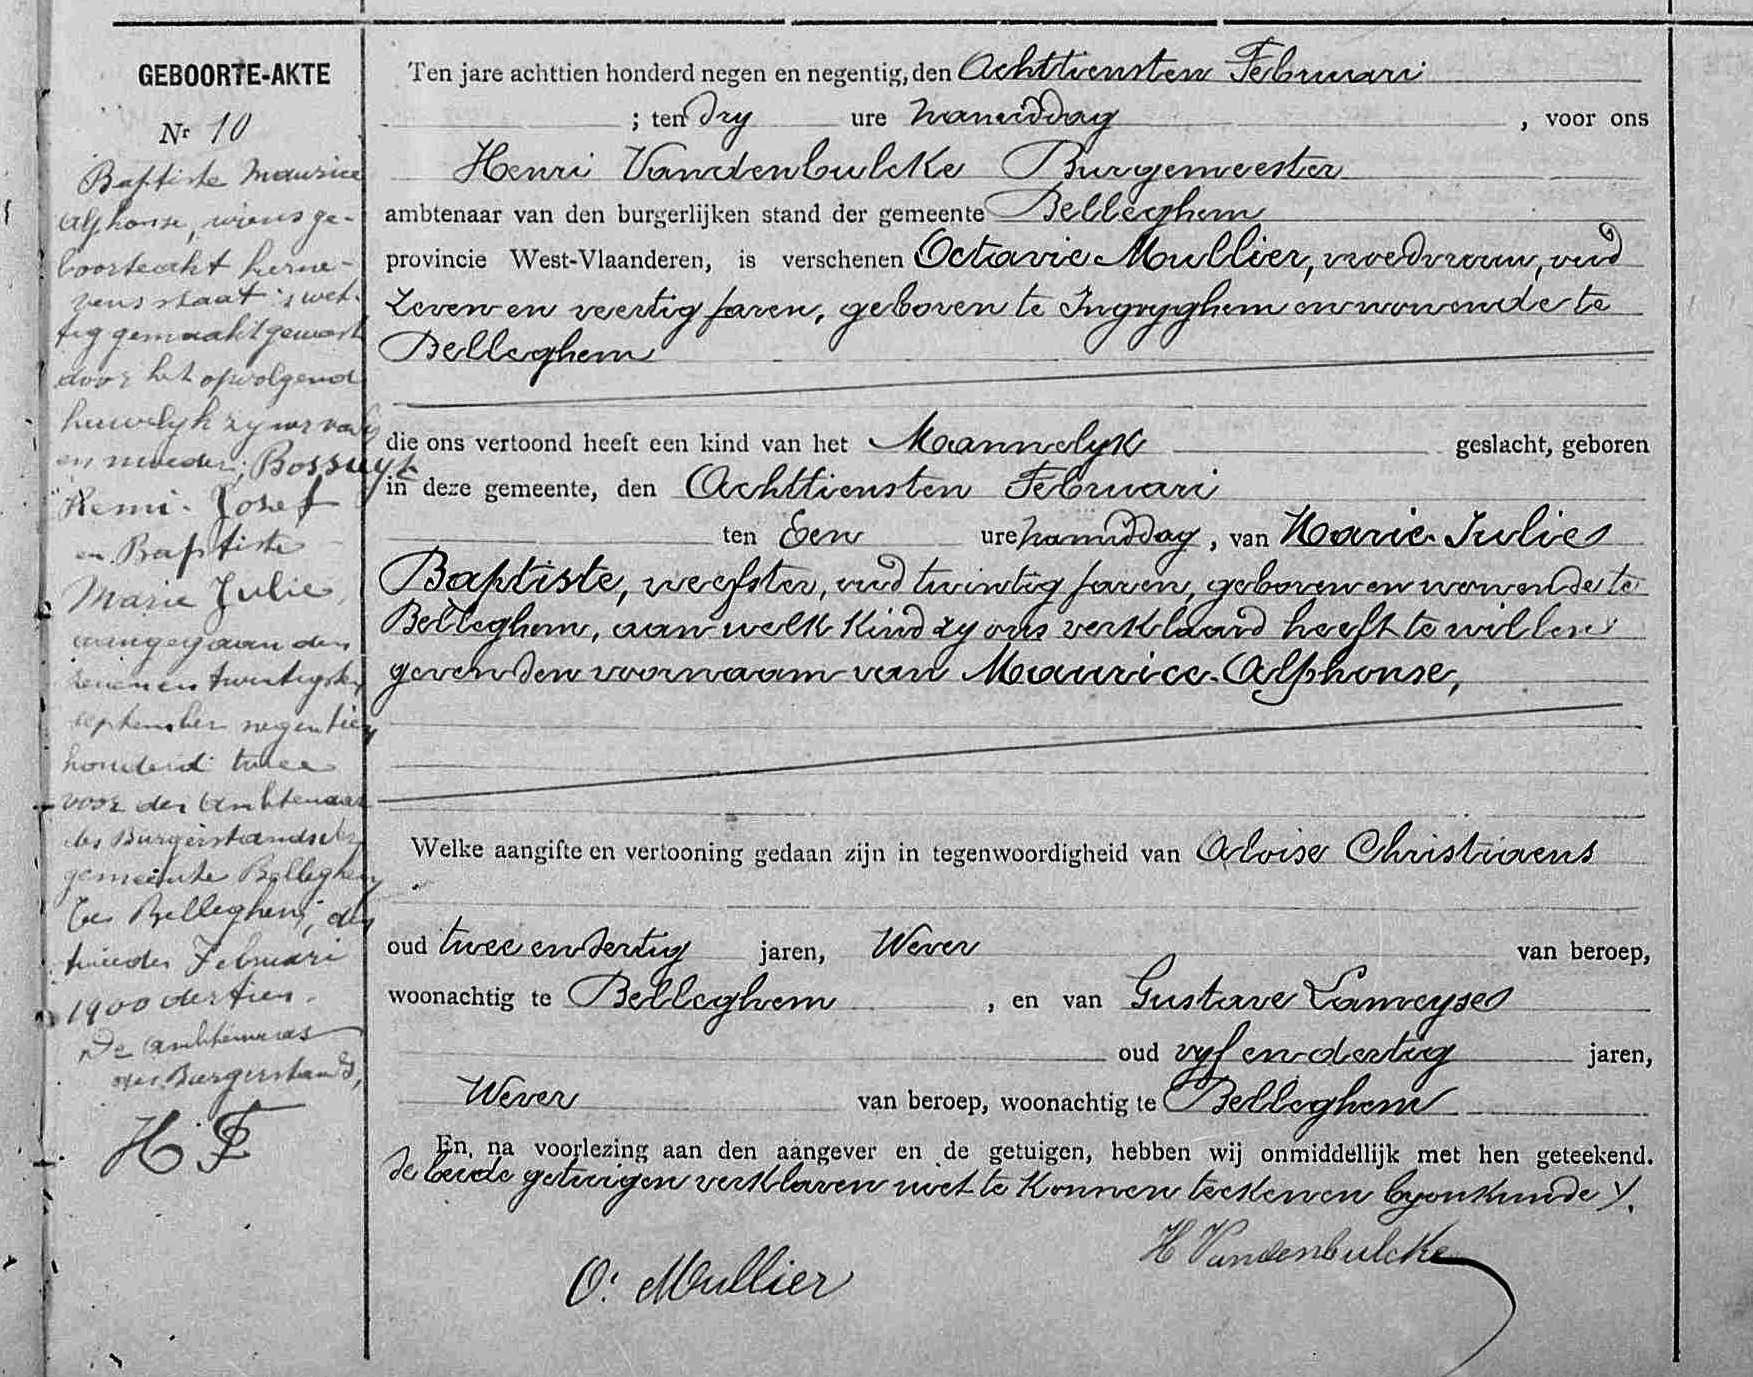 GEBOORTE-AKTE
Nr 10
Baptiste Maurice
Alphonse, wiens ge-
boorteakt herne-
vens staat is wet-
tig gemaakt geword
door het opvolgend
huwelijk zyner vader
en moeder; Bossuyt
Remi-Josef
en Baptiste
Marie Julie,
aangegaan den
zevenentwintigsten
september negentien
honderd twee
voor den Ambtenaar
des Burgerstands der
gemeente Belleghem
Te Belleghem, den
tweeden Februari
1900 dertien.
De Ambtenaar
des Burgerstands,
Ten jare achttien honderd negen en negentig, den Achttiensten Februari
; ten dry ure namiddag, voor ons
Henri Vandenbulcke Burgemeester
ambtenaar van den burgerlijken stand der gemeente Belleghem
provincie West-Vlaanderen, is verschenen Octavie Mullier, vroedvrouw, oud
zeven en veertig jaren, geboren te Ingoyghem en wonende te
Belleghem
die ons vertoond heeft een kind van het Mannelyk geslacht, geboren
in deze gemeente, den Achttiensten Februari
ten Een ure namiddag, van Marie-Julie
Baptiste, weefster, oud twintig jaren, geboren en wonende te
Belleghem, aan welk kind zy ons verklaard heeft te willen
geven den voornaam van Maurice-Alphonse,
Welke aangifte en vertooning gedaan zijn in tegenwoordigheid van Aloise Christiaens
oud twee en dertig jaren, Wever van beroep,
woonachtig te Belleghem, en van Gustave Lameyse
oud vyf en dertig jaren,
Wever van beroep, woonachtig te Belleghem
En, na voorlezing aan den aangever en de getuigen, hebben wij onmiddellijk met hen geteekend.
de beide getuigen verklaren niet te konnen teekenen by onkunde
H Vandenbulcke
O. Mullier